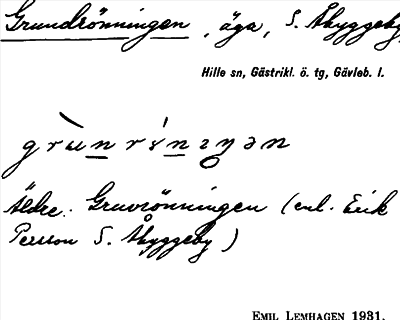 Grundrönningen, äga, S. Åbyggeby
Hille sn, Gästrikl. ö. tg, Gävleb. l.
Äldre: Gruvrönningen (enl. Erik
Persson S. Åbyggeby)
EMIL LEMHAGEN 1931.